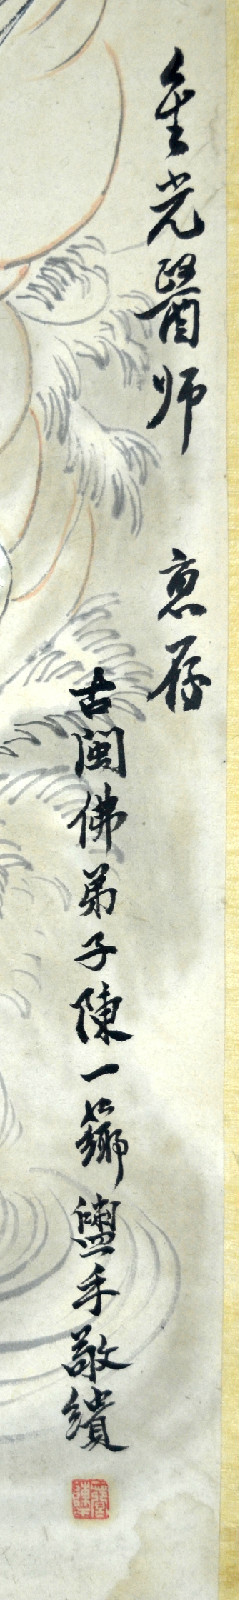 金光醫师 惠存
古閩佛弟子陳一薌盥手敬繢